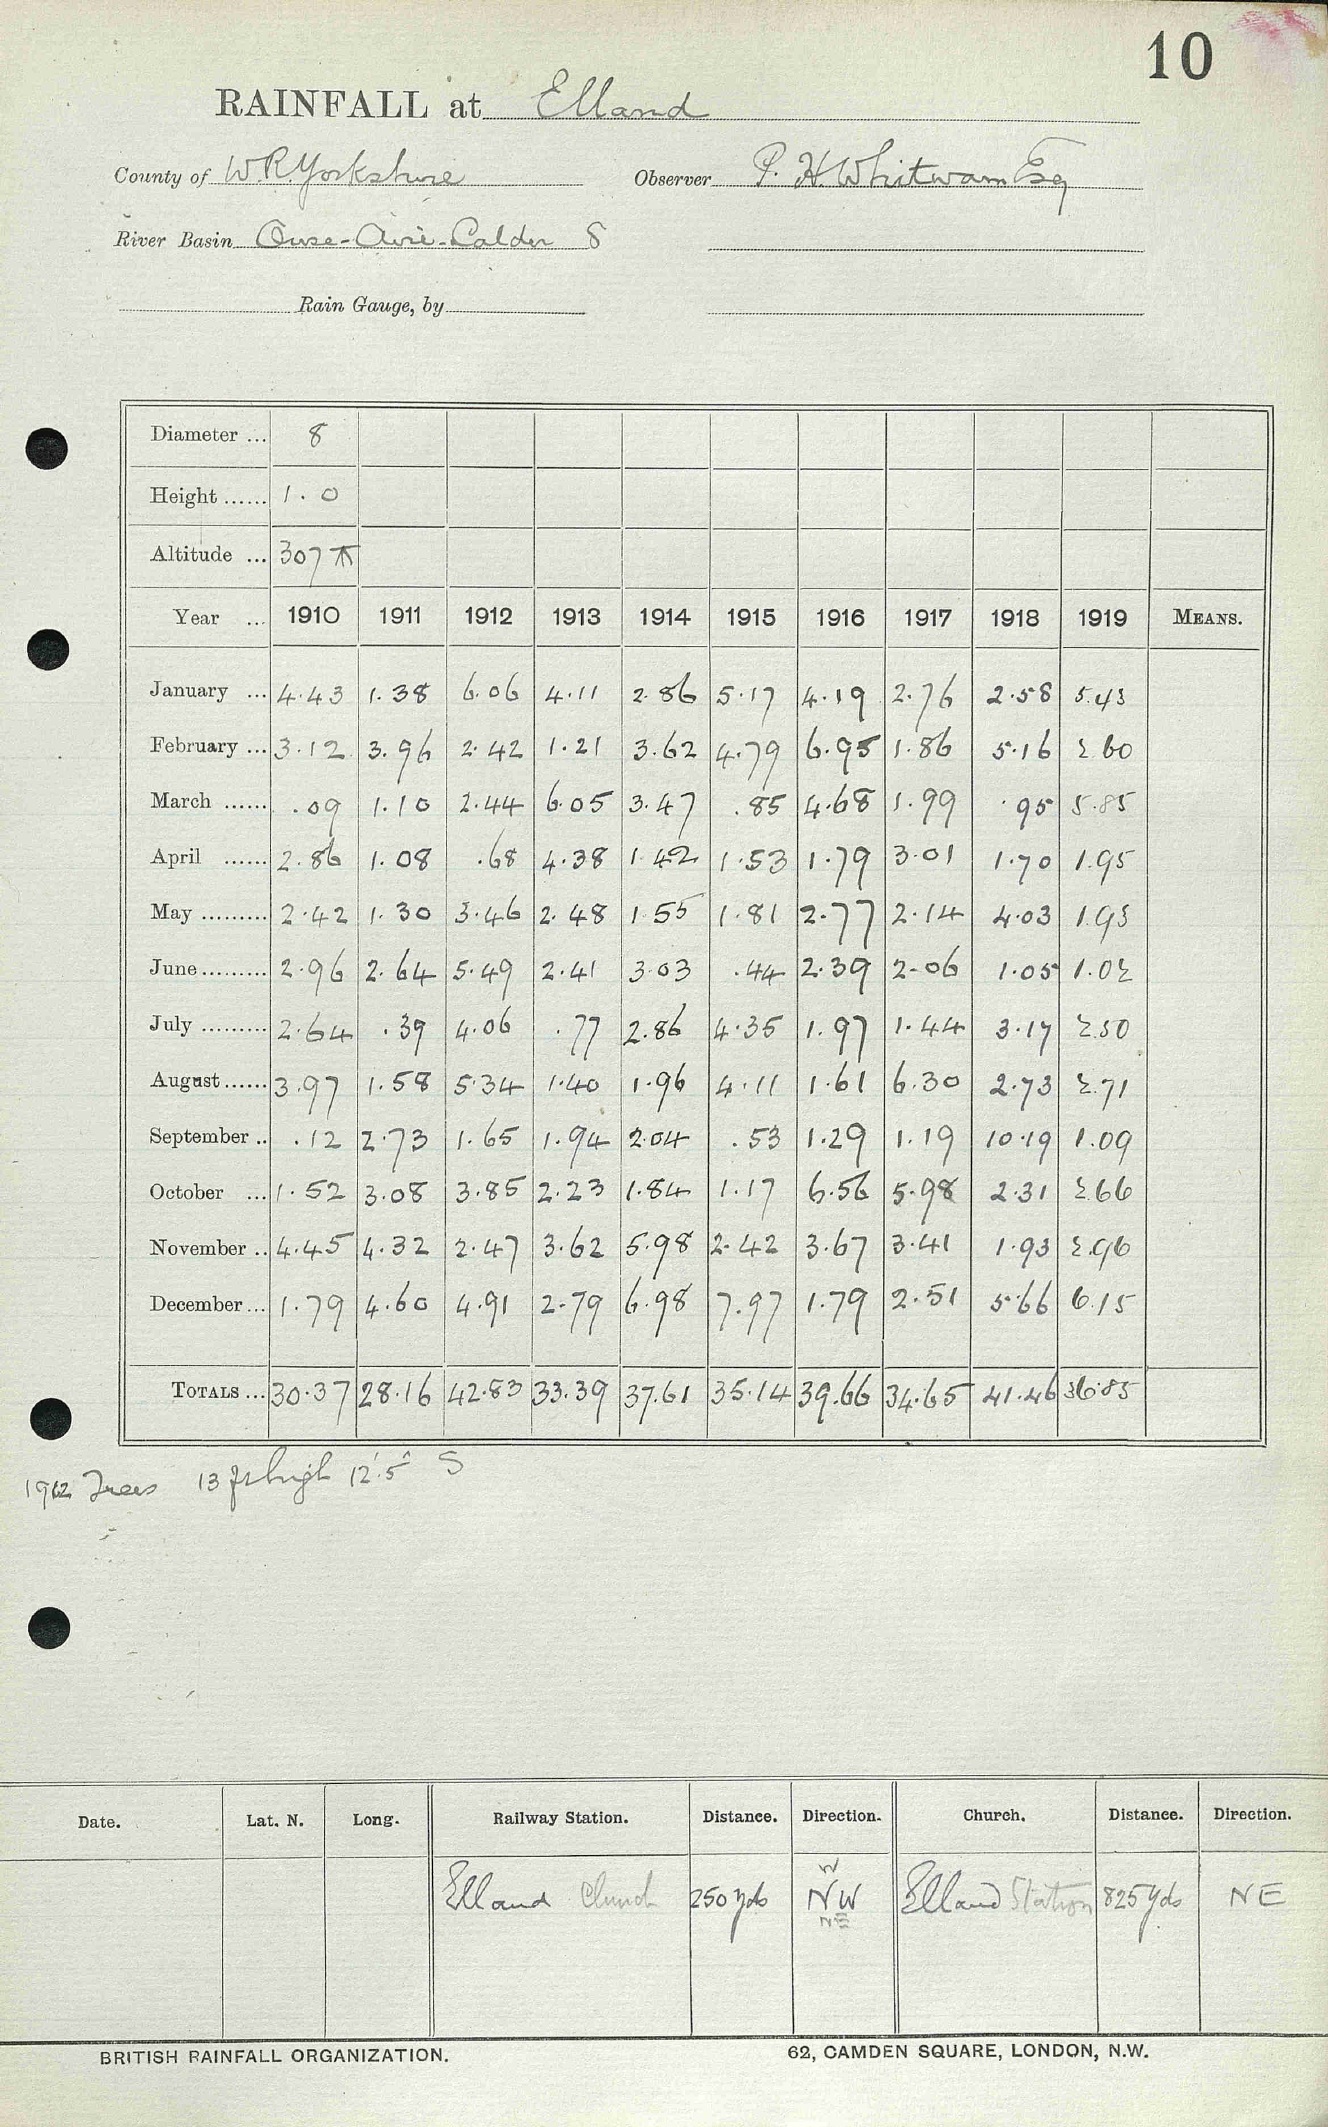 10
RAINFALL at Elland
County of W.R. Yorkshire Observer P. H. Whitwam Esq
River Basin Ouse-Aire-Calder 8
Rain Gauge, by
Diameter ... 8
Height ...... 1.0
Altitude ... 307
Year ... 1910 1911 1912 1913 1914 1915 1916 1917 1918 1919 MEANS.
January ... 4.43 1.38 6.06 4.11 2.86 5.17 4.19 2.76 2.58 5.43
February ... 3.12 3.96 2.42 1.21 3.62 4.79 6.95 1.86 5.16 2.60
March ...... .09 1.10 2.44 6.05 3.47 .85 4.68 1.99 .95 5.85
April ...... 2.86 1.08 .68 4.38 1.42 1.53 1.79 3.01 1.70 1.95
May ......... 2.42 1.30 3.46 2.48 1.55 1.81 2.77 2.14 4.03 1.93
June ......... 2.96 2.64 5.49 2.41 3.03 .44 2.39 2.06 1.05 1.02
July ......... 2.64 .39 4.06 .77 2.86 4.35 1.97 1.44 3.17 2.50
August ...... 3.97 1.58 5.34 1.40 1.96 4.11 1.61 6.30 2.73 2.71
September .. .12 2.73 1.65 1.94 2.04 .53 1.29 1.19 10.19 1.09
October ... 1.52 3.08 3.85 2.23 1.84 1.17 6.56 5.98 2.31 2.66
November .. 4.45 4.32 2.47 3.62 5.98 2.42 3.67 3.41 1.93 2.96
December ... 1.79 4.60 4.91 2.79 6.98 7.97 1.79 2.51 5.66 6.15
TOTALS ... 30.37 28.16 42.83 33.39 37.61 35.14 39.66 34.65 41.46 36.85
1912 Trees 13 ft high 12'.5" S
Date. Lat. N. Long. Railway Station. Distance. Direction. Church. Distance. Direction.
W
Elland Church 250 yds NW Elland Station 825 yds NE
NE
BRITISH RAINFALL ORGANIZATION. 62, CAMDEN SQUARE, LONDON, N.W.